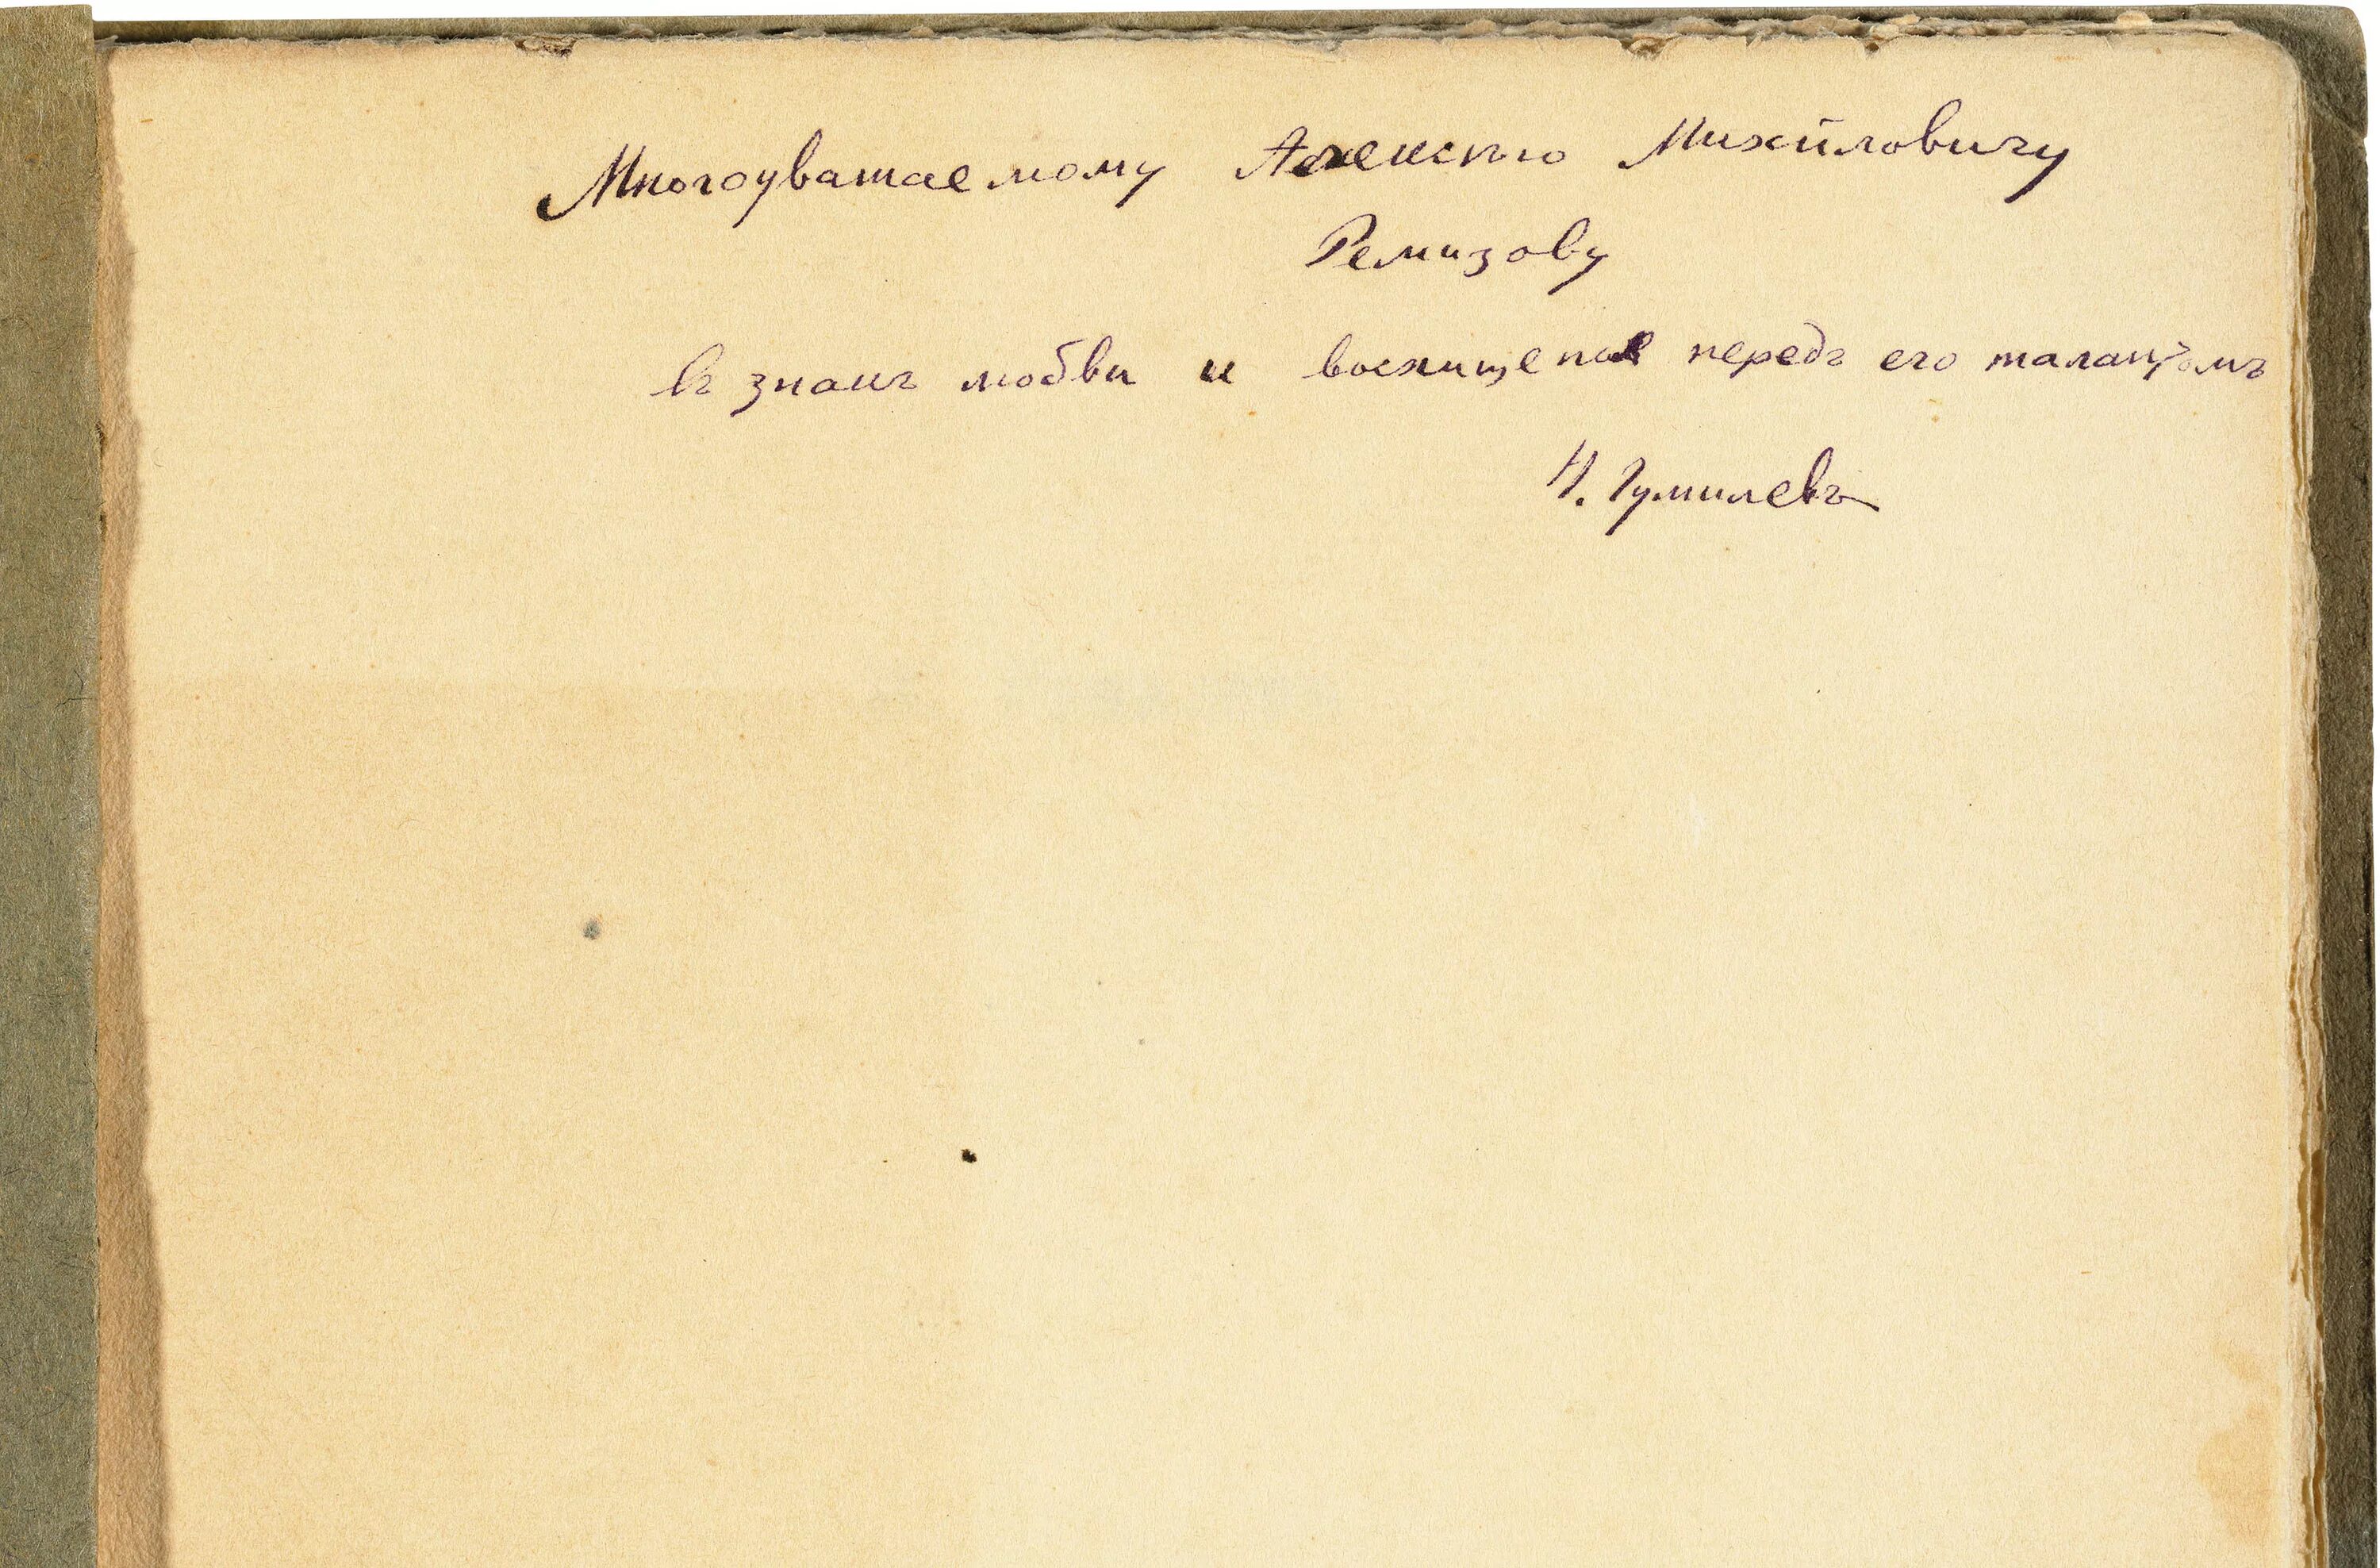 Многоуважаемому Алексѣю Михайловичу
Ремизову
въ знакъ любви и восхищенія передъ его талантомъ
Н. Гумилевъ